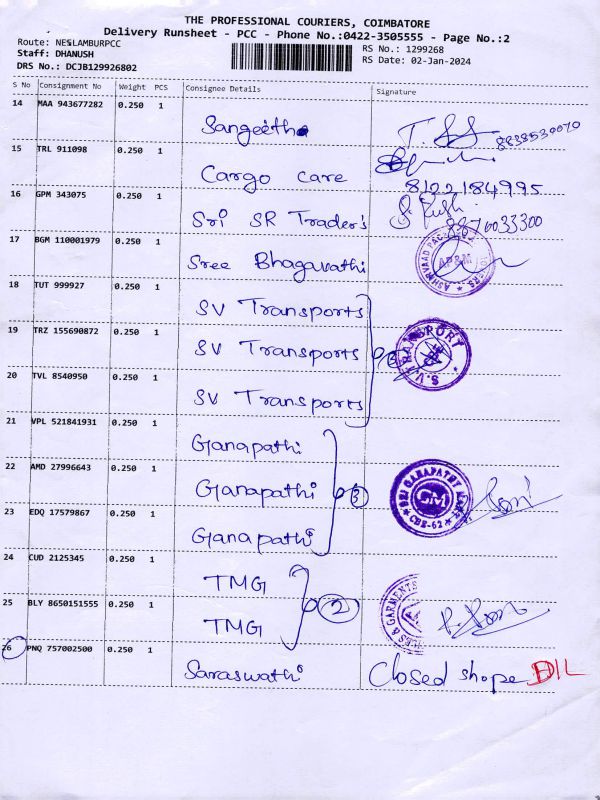 THE PROFESSIONAL COURIERS, COIMBATORE
Delivery Runsheet - PCC - Phone No.:0422-3505555 - Page No.:2
Route: NESLAMBURPCC
RS No.: 1299268
Staff: DHANUSH
RS Date: 02-Jan-2024
DRS No.: DCJB129926802
S No Consignment No Weight PCS Consignee Details Signature
14 MAA 943677282 0.250 1 Sangeetha
15 TRL 911098 0.250 1 Cargo care 8122184995
16 GPM 343075 0.250 1 Sri SR Trader's
17 BGM 110001979 0.250 1 Sree Bhagavathi
18 TUT 999927 0.250 1 SV Transports
19 TRZ 155690872 0.250 1 SV Transports S.V.TRANSPORT
20 TVL 8540950 0.250 1 SV Transports
21 VPL 521841931 0.250 1 Ganapathi
22 AMD 27996643 0.250 1 Ganapathi 3 SRI GANAPATHY GM CBE-62
23 EDQ 17579867 0.250 1 Ganapathi
24 CUD 2125345 0.250 1 TMG
25 BLY 8650151555 0.250 1 TMG 2 & GARMENTS
26 PNQ 757002500 0.250 1 Saraswathi Closed shope DIL